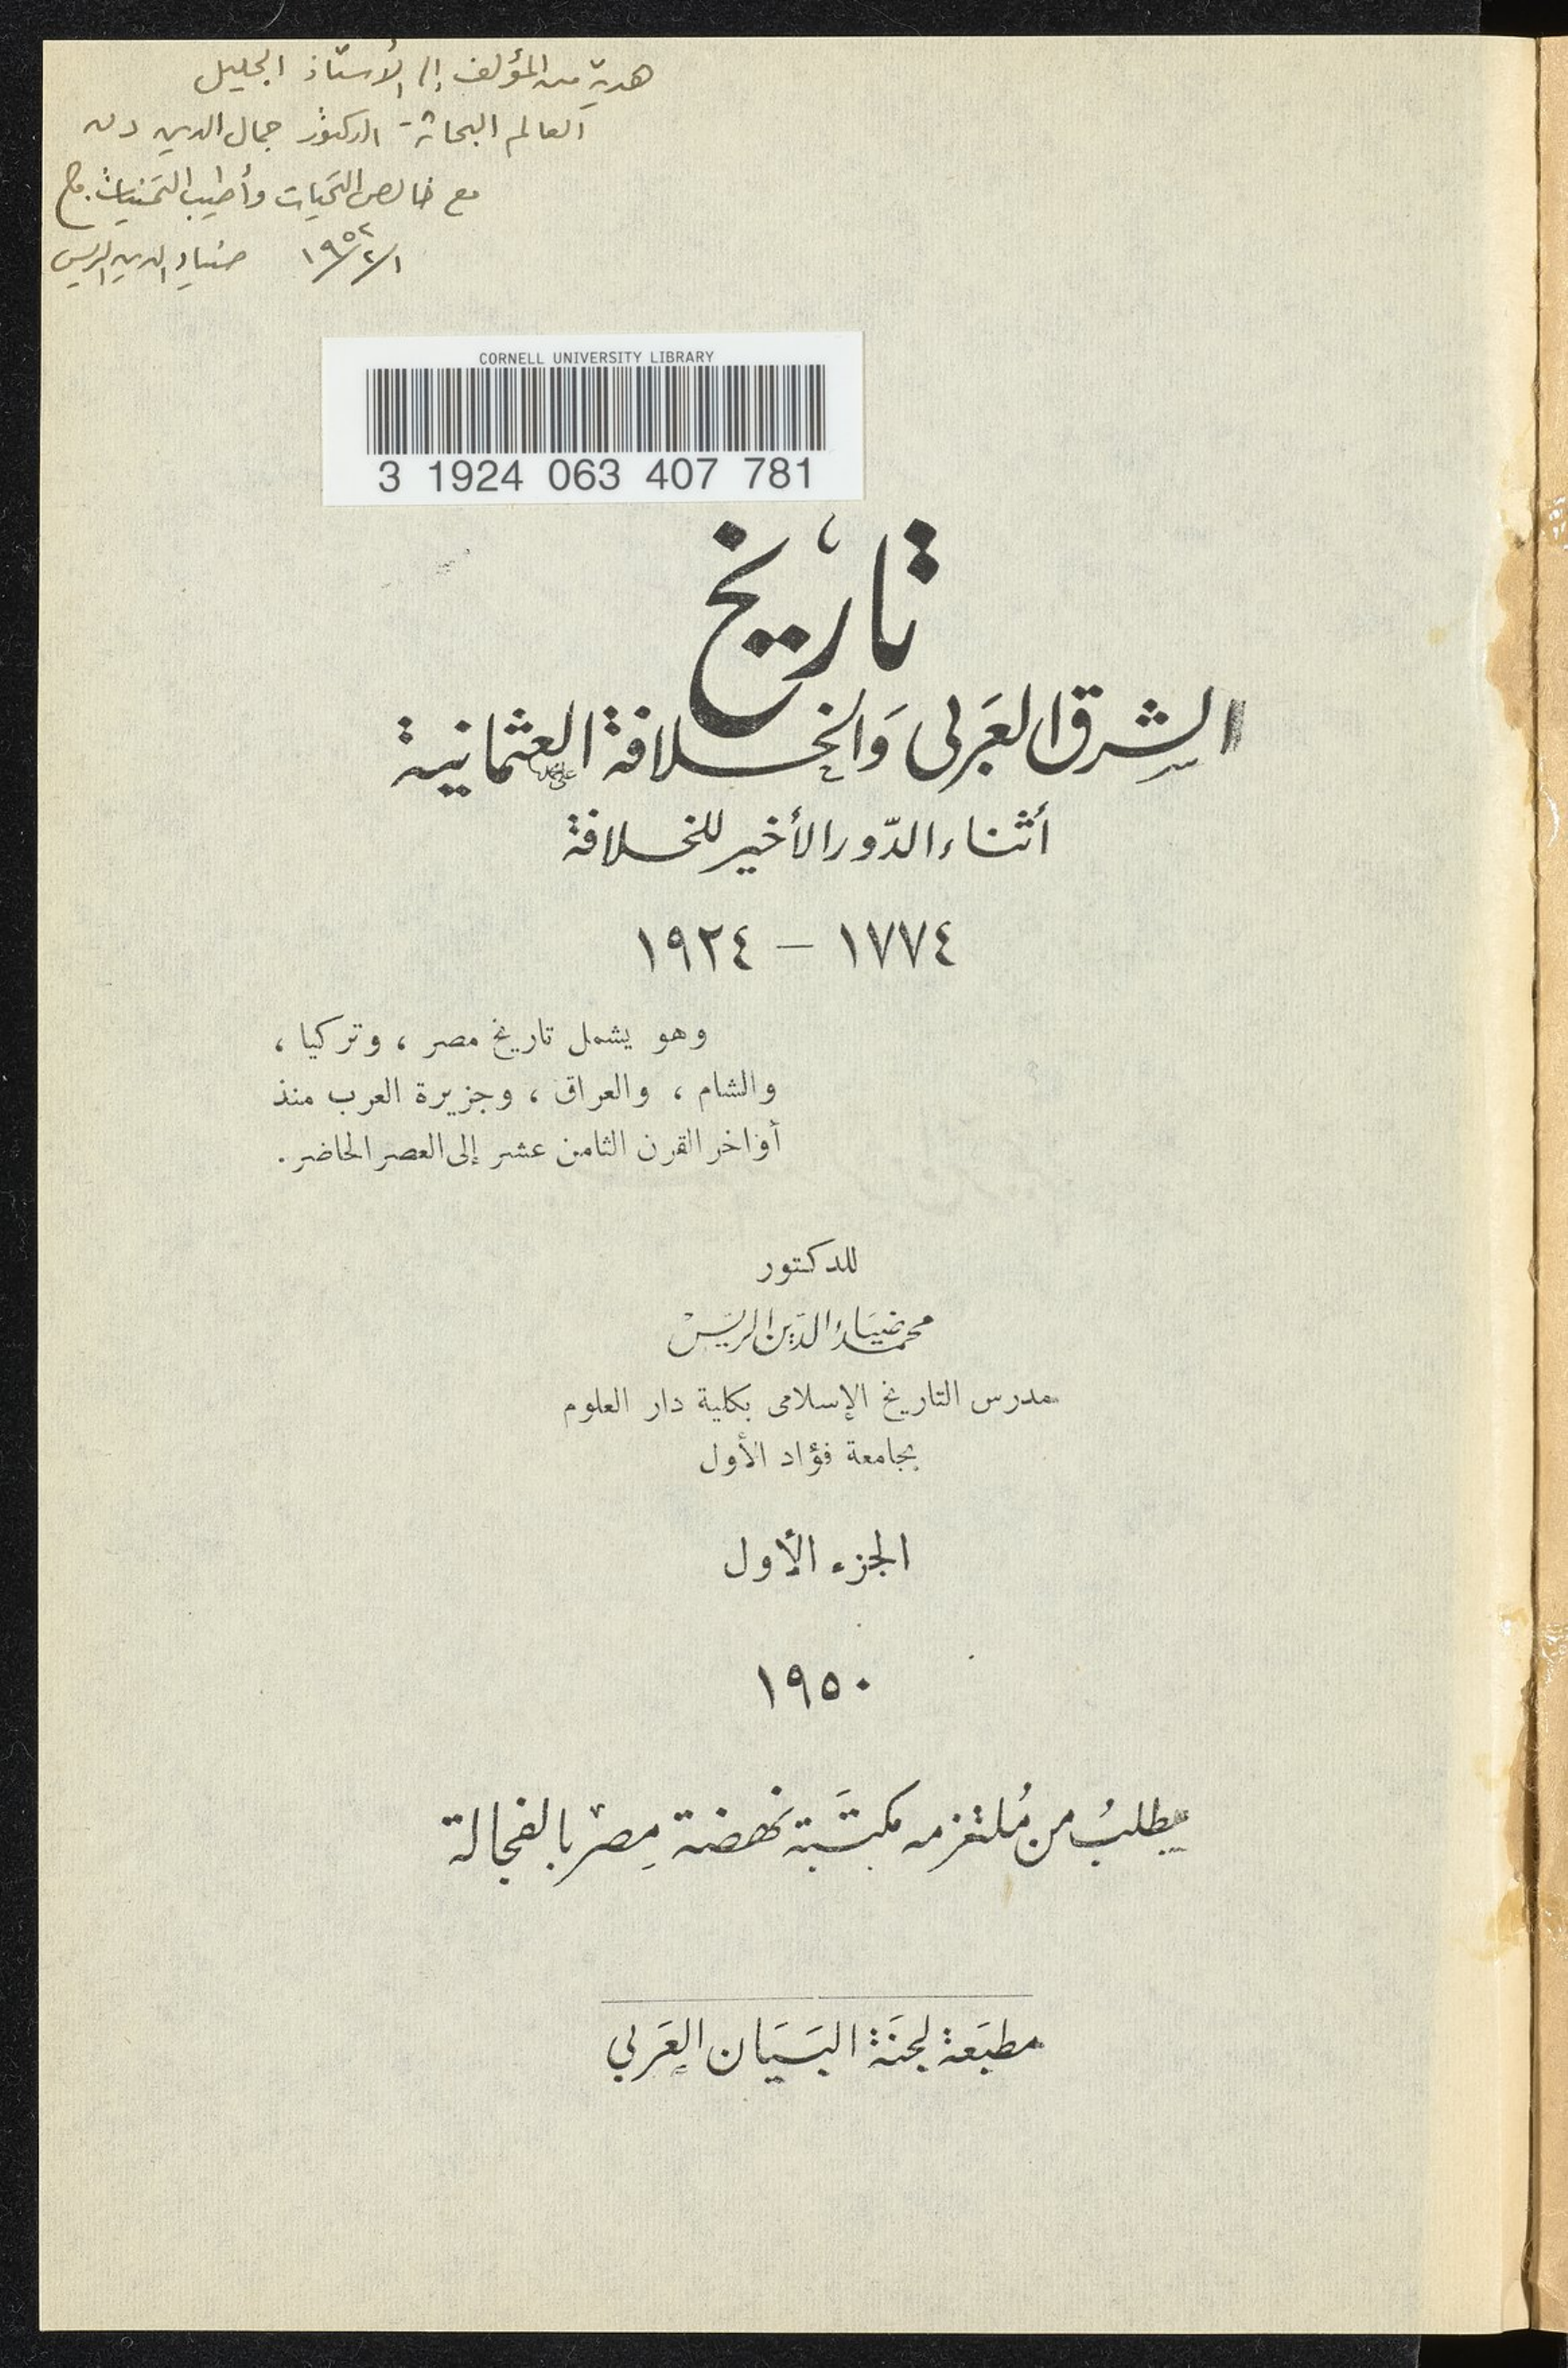 هدية من المؤلف إلى الأستاذ الجليل
العالم البحاثة الدكتور جمال الدين
مع خالص التحيات وأطيب التمنيات
١٩٥٢/٢/١ ضياء الدين الريس
CORNELL UNIVERSITY LIBRARY
3 1924 063 407 781
تاريخ
الشرق العَربى وَالخلافة العثمانية
أثناء الدّور الأخير للخلافة
١٧٧٤ – ١٩٢٤
وهو يشمل تاريخ مصر ، وتركيا ،
والشام ، والعراق ، وجزيرة العرب منذ
أواخر القرن الثامن عشر إلى العصر الحاضر .
للدكتور
محمد ضياء الدين الريس
مدرس التاريخ الإسلامى بكلية دار العلوم
بجامعة فؤاد الأول
الجزء الأول
١٩٥٠
يطلبُ من مُلتزمه مكتَبة نهضة مِصر بالفجالة
مطبَعة لجنَة البَيَان العَربي